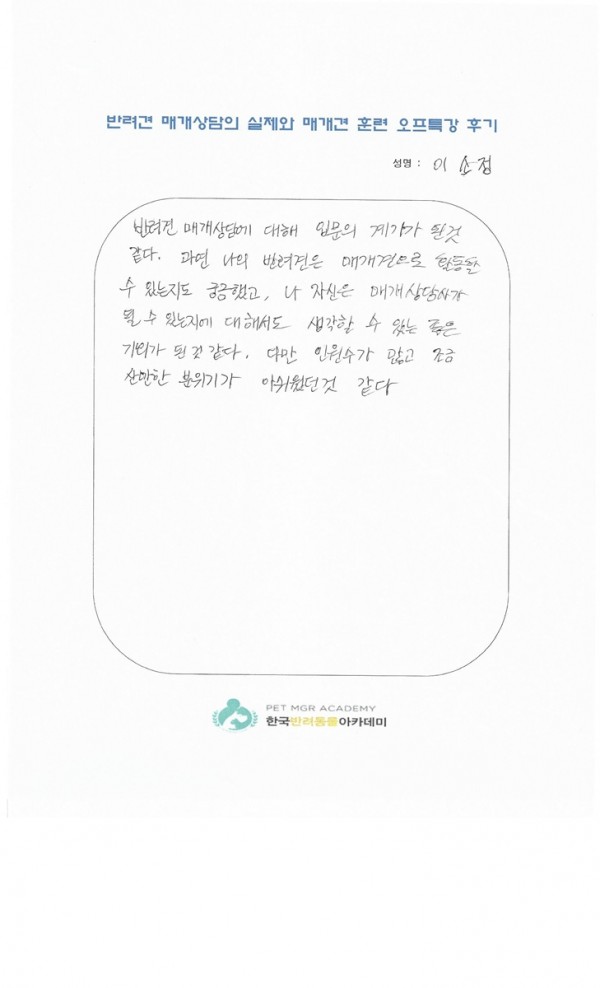 반려견 매개상담의 실제와 매개견 훈련 오프특강 후기
성명 : 이 소정
반려견 매개상담에 대해 입문의 계기가 된것
같다. 과연 나의 반려견은 매개견으로 활동할
수 있는지도 궁금했고, 나 자신은 매개상담사가
될 수 있는지에 대해서도 생각할 수 있는 좋은
기회가 된 것 같다. 다만 인원수가 많고 조금
산만한 분위기가 아쉬웠던것 같다
PET MGR ACADEMY
한국반려동물아카데미